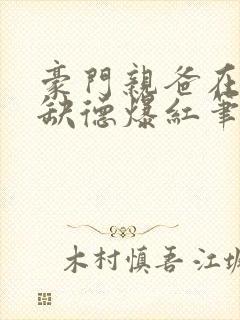 豪門親爸在
缺德爆紅筆
木村慎吾 江城